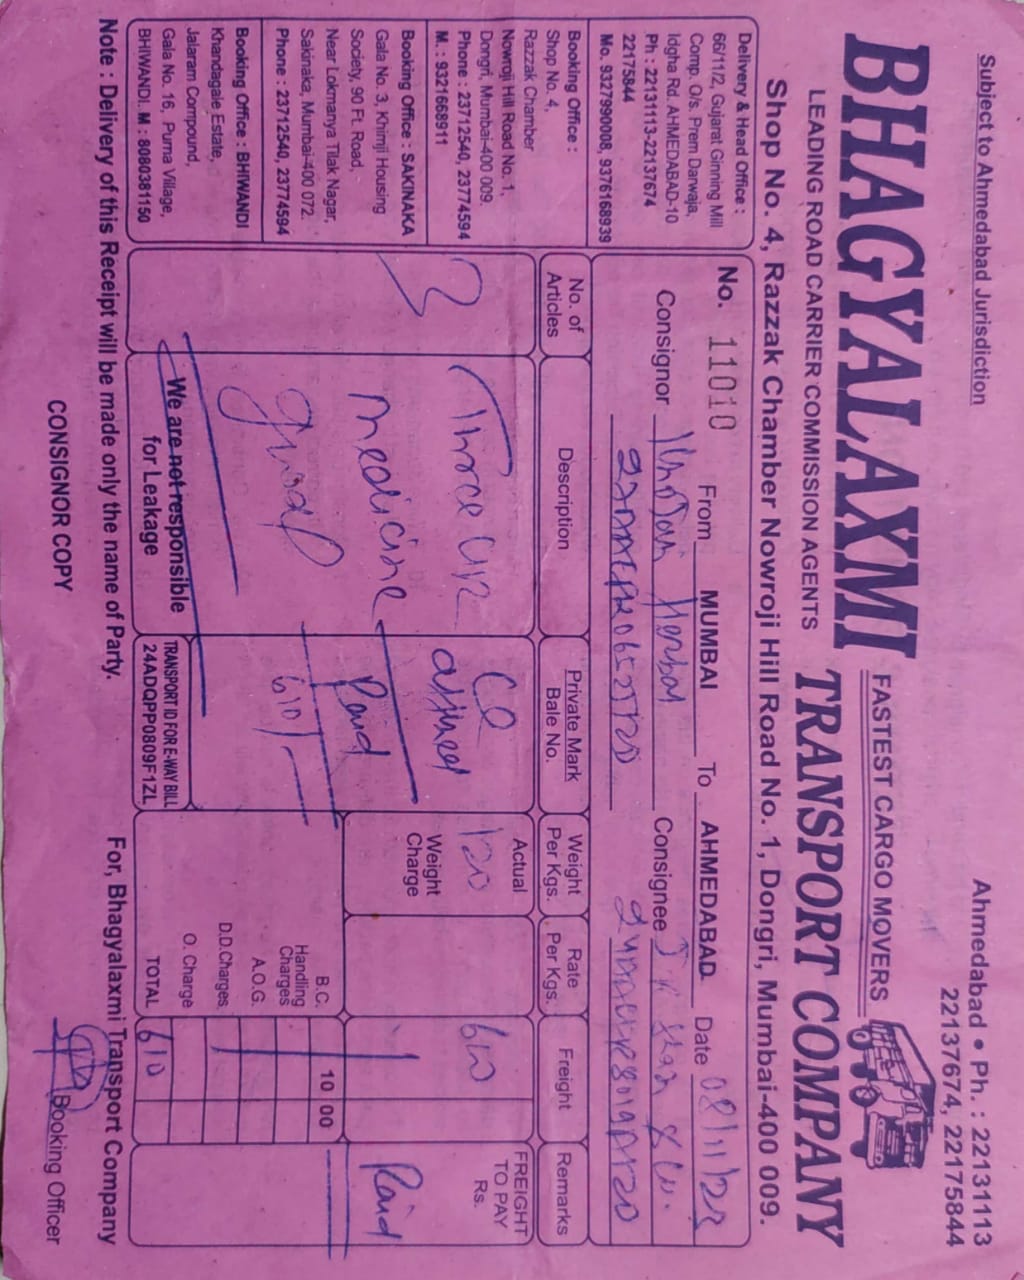 Subject to Ahmedabad Jurisdiction
Ahmedabad • Ph. : 22131113
22137674, 22175844
BHAGYALAXMI
FASTEST CARGO MOVERS
TRANSPORT COMPANY
LEADING ROAD CARRIER COMMISSION AGENTS
Shop No. 4, Razzak Chamber Nowroji Hill Road No. 1, Dongri, Mumbai-400 009.
Delivery & Head Office :
66/11/2, Gujarat Ginning Mill
Comp. O/s. Prem Darwaja,
Idgha Rd. AHMEDABAD-10
Ph : 22131113-22137674
22175844
Mo. 9327990008, 9376168939
Booking Office :
Shop No. 4,
Razzak Chamber
Nowroji Hill Road No. 1,
Dongri, Mumbai-400 009.
Phone : 23712540, 23774594
M. : 9321668911
Booking Office : SAKINAKA
Gala No. 3, Khimji Housing
Society, 90 Ft. Road,
Near Lokmanya Tilak Nagar,
Sakinaka, Mumbai-400 072.
Phone : 23712540, 23774594
Booking Office : BHIWANDI
Khandagale Estate,
Jalaram Compound,
Gala No. 16, Purna Village,
BHIWANDI. M : 8080381150
No. 11010 From MUMBAI To AHMEDABAD Date 08/11/22
Consignor Consignee
No. of Articles
Description
Private Mark Bale No.
Weight Per Kgs.
Rate Per Kgs.
Freight
Remarks
3
Three
medicine
Paid
610/-
Actual
120
Weight Charge
600
FREIGHT TO PAY Rs.
Paid
B.C. 10 00
Handling Charges
A.O.G.
D.D.Charges
O. Charge
TOTAL 610
We are not responsible
for Leakage
TRANSPORT ID FOR E-WAY BILL
24ADQPP0809F1ZL
Note : Delivery of this Receipt will be made only the name of Party.
For, Bhagyalaxmi Transport Company
CONSIGNOR COPY
Booking Officer